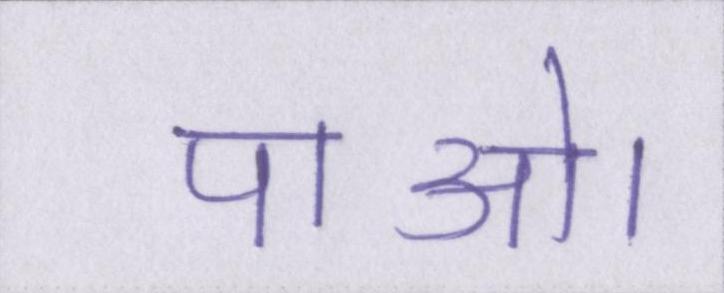 पाओ।